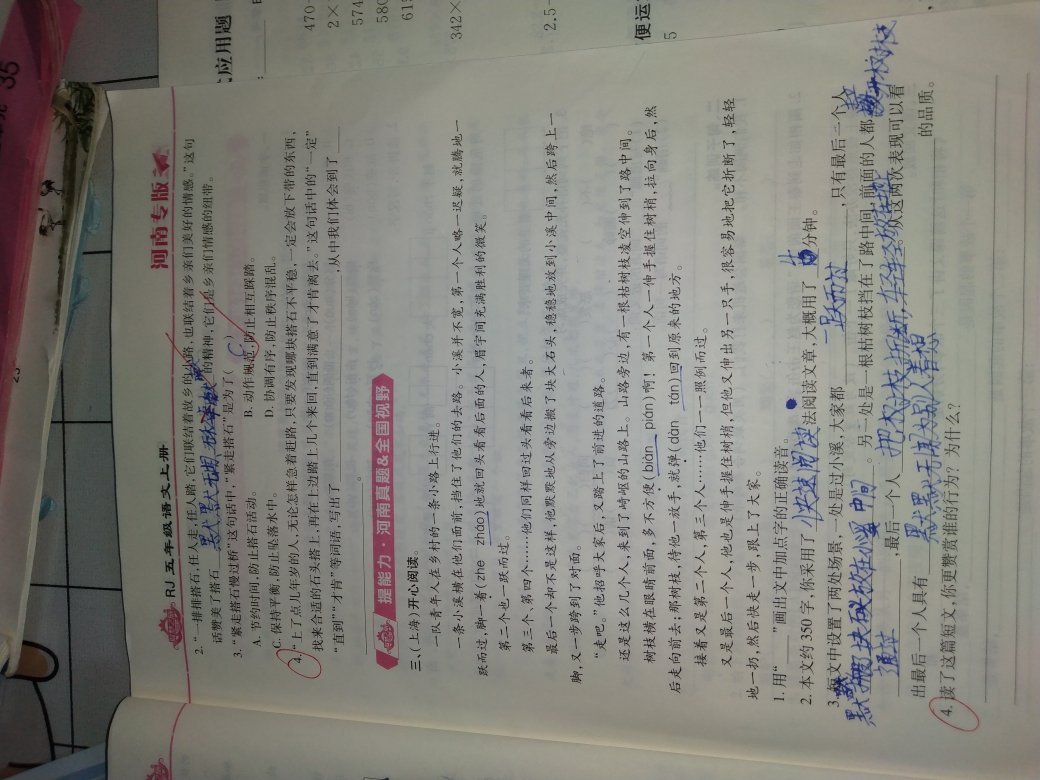 RJ 五年级语文上册
河南专版
2. “一排排搭石,任人走,任人踏,它们联结着故乡的小路,也联结着乡亲们美好的情感。”这句
话赞美了搭石 默默无 的精神,它们是乡亲们情感的纽带。
3. “紧走搭石慢过桥”这句话中,“紧走搭石”是为了( C )
A. 节约时间,防止搭石活动。
B. 动作规范,防止相互踩踏。
C. 保持平衡,防止坠落水中。
D. 协调有序,防止秩序混乱。
4. “上了点儿年岁的人,无论怎样急着赶路,只要发现哪块搭石不平稳,一定会放下带的东西,
找来合适的石头搭上,再在上边踏上几个来回,直到满意了才肯离去。”这句话中的“一定”
“直到”“才肯”等词语,写出了,从中我们体会到了
。
提能力·河南真题&全国视野
三、(上海)开心阅读。
一队青年人在乡村的一条小路上行进。
一条小溪横在他们面前,挡住了他们的去路。小溪并不宽,第一个人略一迟疑,就腾地一
跃而过,脚一着(zhe zháo)地就回头看看后面的人,眉宇间充满胜利的微笑。
第二个也一跃而过。
第三个、第四个……他们同样回过头看看后来者。
最后一个却不是这样,他默默地从旁边搬了块大石头,稳稳地放到小溪中间,然后跨上一
脚,又一步跨到了对面。
“走吧。”他招呼大家后,又踏上了前进的道路。
还是这么几个人,来到了崎岖的山路上。山路旁边,有一根枯树枝凌空伸到了路中间。
树枝横在眼睛前面,多不方便(biàn pián)啊!第一个人一伸手握住树梢,拉向身后,然
后走向前去;那树枝,待他一放手,就弹(dàn tán)回到原来的地方。
接着又是第二个人,第三个人……他们一一照例而过。
又是最后一个人,他也是伸手握住树梢,但他又伸出另一只手,很容易地把它折断了,轻轻
地一扔,然后快走一步,跟上了大家。
1. 用“ ”画出文中加点字的正确读音。
2. 本文约 350 字,你采用了 快速阅读 法阅读文章,大概用了 分钟。
3. 短文中设置了两处场景,一处是过小溪,大家都 一跃而过 ,只有最后一个人
默默 块 放在小溪中间 。另一处是一根枯树枝挡在了路中间,前面的人都 树枝
,最后一个人 把 枝折断,轻轻 。从这两次表现可以看
出最后一个人具有 默默无 为别人着想 的品质。
4. 读了这篇短文,你更赞赏谁的行为?为什么?
应用题
便运
35
470
2×
574
580
615
342×
2.5
5